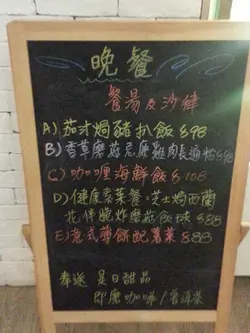 晚餐
餐湯及沙律
A) 茄汁焗豬扒飯 $98
B) 香草蘑菇忌廉雞肉長通粉 $98
C) 咖喱海鮮飯 $108
D) 健康素菜餐:芝士焗西蘭
花伴脆炸蘑菇飯 $88
E) 意式薄餅配薯菜 $88
奉送 是日甜品
即磨咖啡/